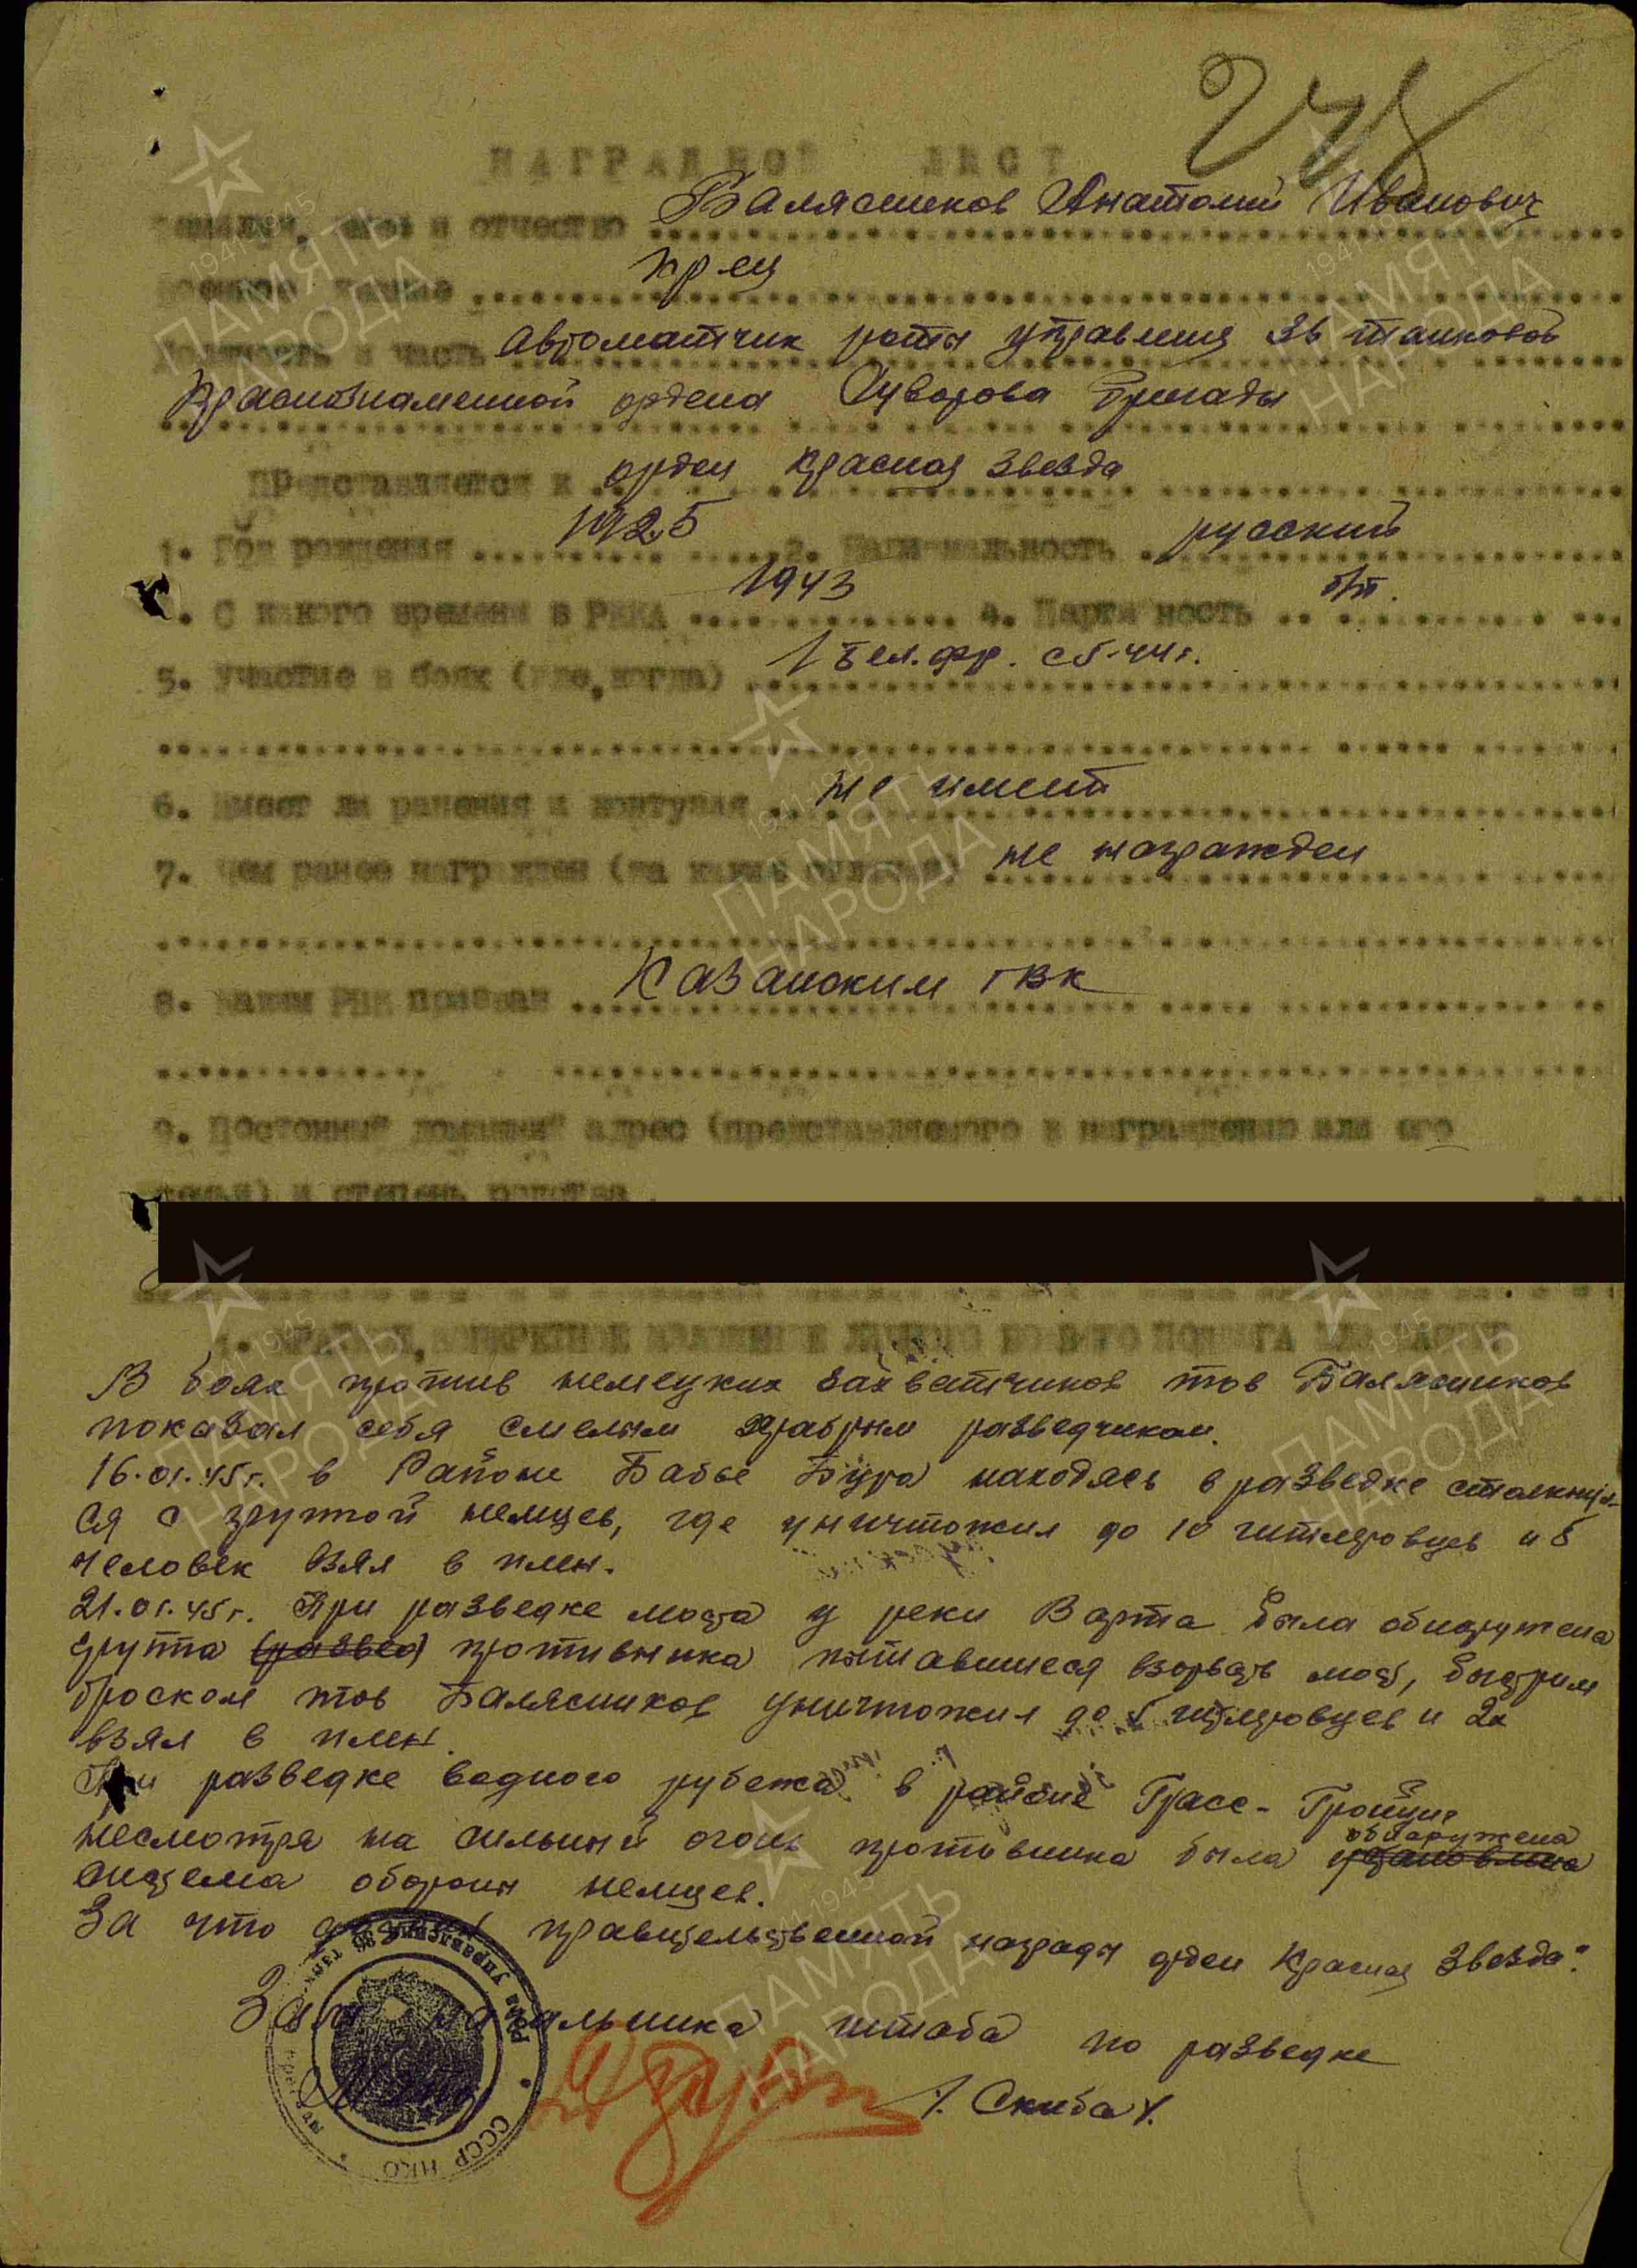 НАГРАДНОЙ ЛИСТ
Фамилия, имя и отчество Балясников Анатолий Иванович
Военное звание кр-ец
Должность и часть автоматчик роты управления 36 танковой
Краснознаменной ордена Суворова бригады
Представляется к орден Красная Звезда
1. Год рождения 1925 2. Национальность русский
3. С какого времени в РККА 1943 4. Партийность б/п.
5. Участие в боях (где, когда) 1 Бел. фр. с 5-44 г.
6. Имеет ли ранения и контузия не имеет
7. Чем ранее награжден (за какие отличия) не награжден
8. Каким РВК призван Казанским ГВК
9. Постоянный домашний адрес (представляемого к награждению или его
семьи) и степень родства
1. КРАТКОЕ, КОНКРЕТНОЕ ИЗЛОЖЕНИЕ ЛИЧНОГО БОЕВОГО ПОДВИГА ИЛИ ЗАСЛУГ
В боях против немецких захватчиков тов Балясников
показал себя смелым храбрым разведчиком.
16.01.45 г. в Районе Бабье Бура находясь в разведке столкнул-
ся с группой немцев, где уничтожил до 10 гитлеровцев и 5
человек взял в плен.
21.01.45 г. При разведке моста у реки Варта была обнаружена
группа (развед) противника пытавшиеся взорвать мост, быстрым
броском тов Балясников уничтожил до 5 гитлеровцев и 2х
взял в плен.
При разведке водного рубежа в районе Грасс-
несмотря на сильный огонь противника была установлена обнаружена
система обороны немцев.
За что достоин правительственной награды орден Красная Звезда".
Зам начальника штаба по разведке
/. Скиба /.
Рота управления 36 танк
СССР НКО
248
1941 1945
ПАМЯТЬ
НАРОДА